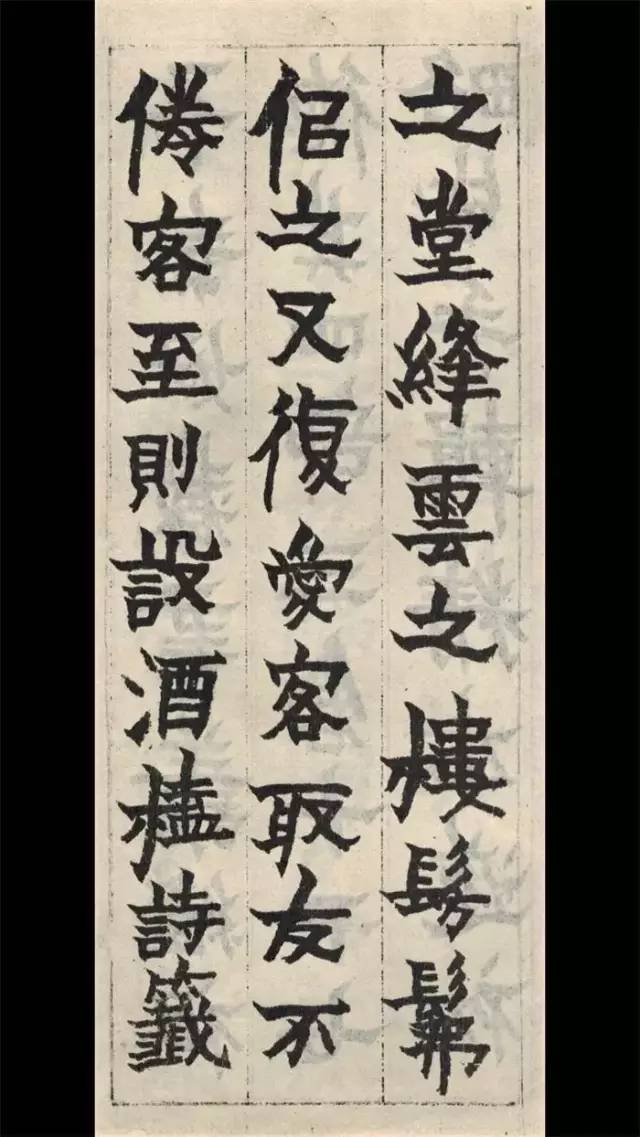 之堂絳雲之樓髣髴
佀之又復愛客取友不
倦客至則設酒榼詩籤